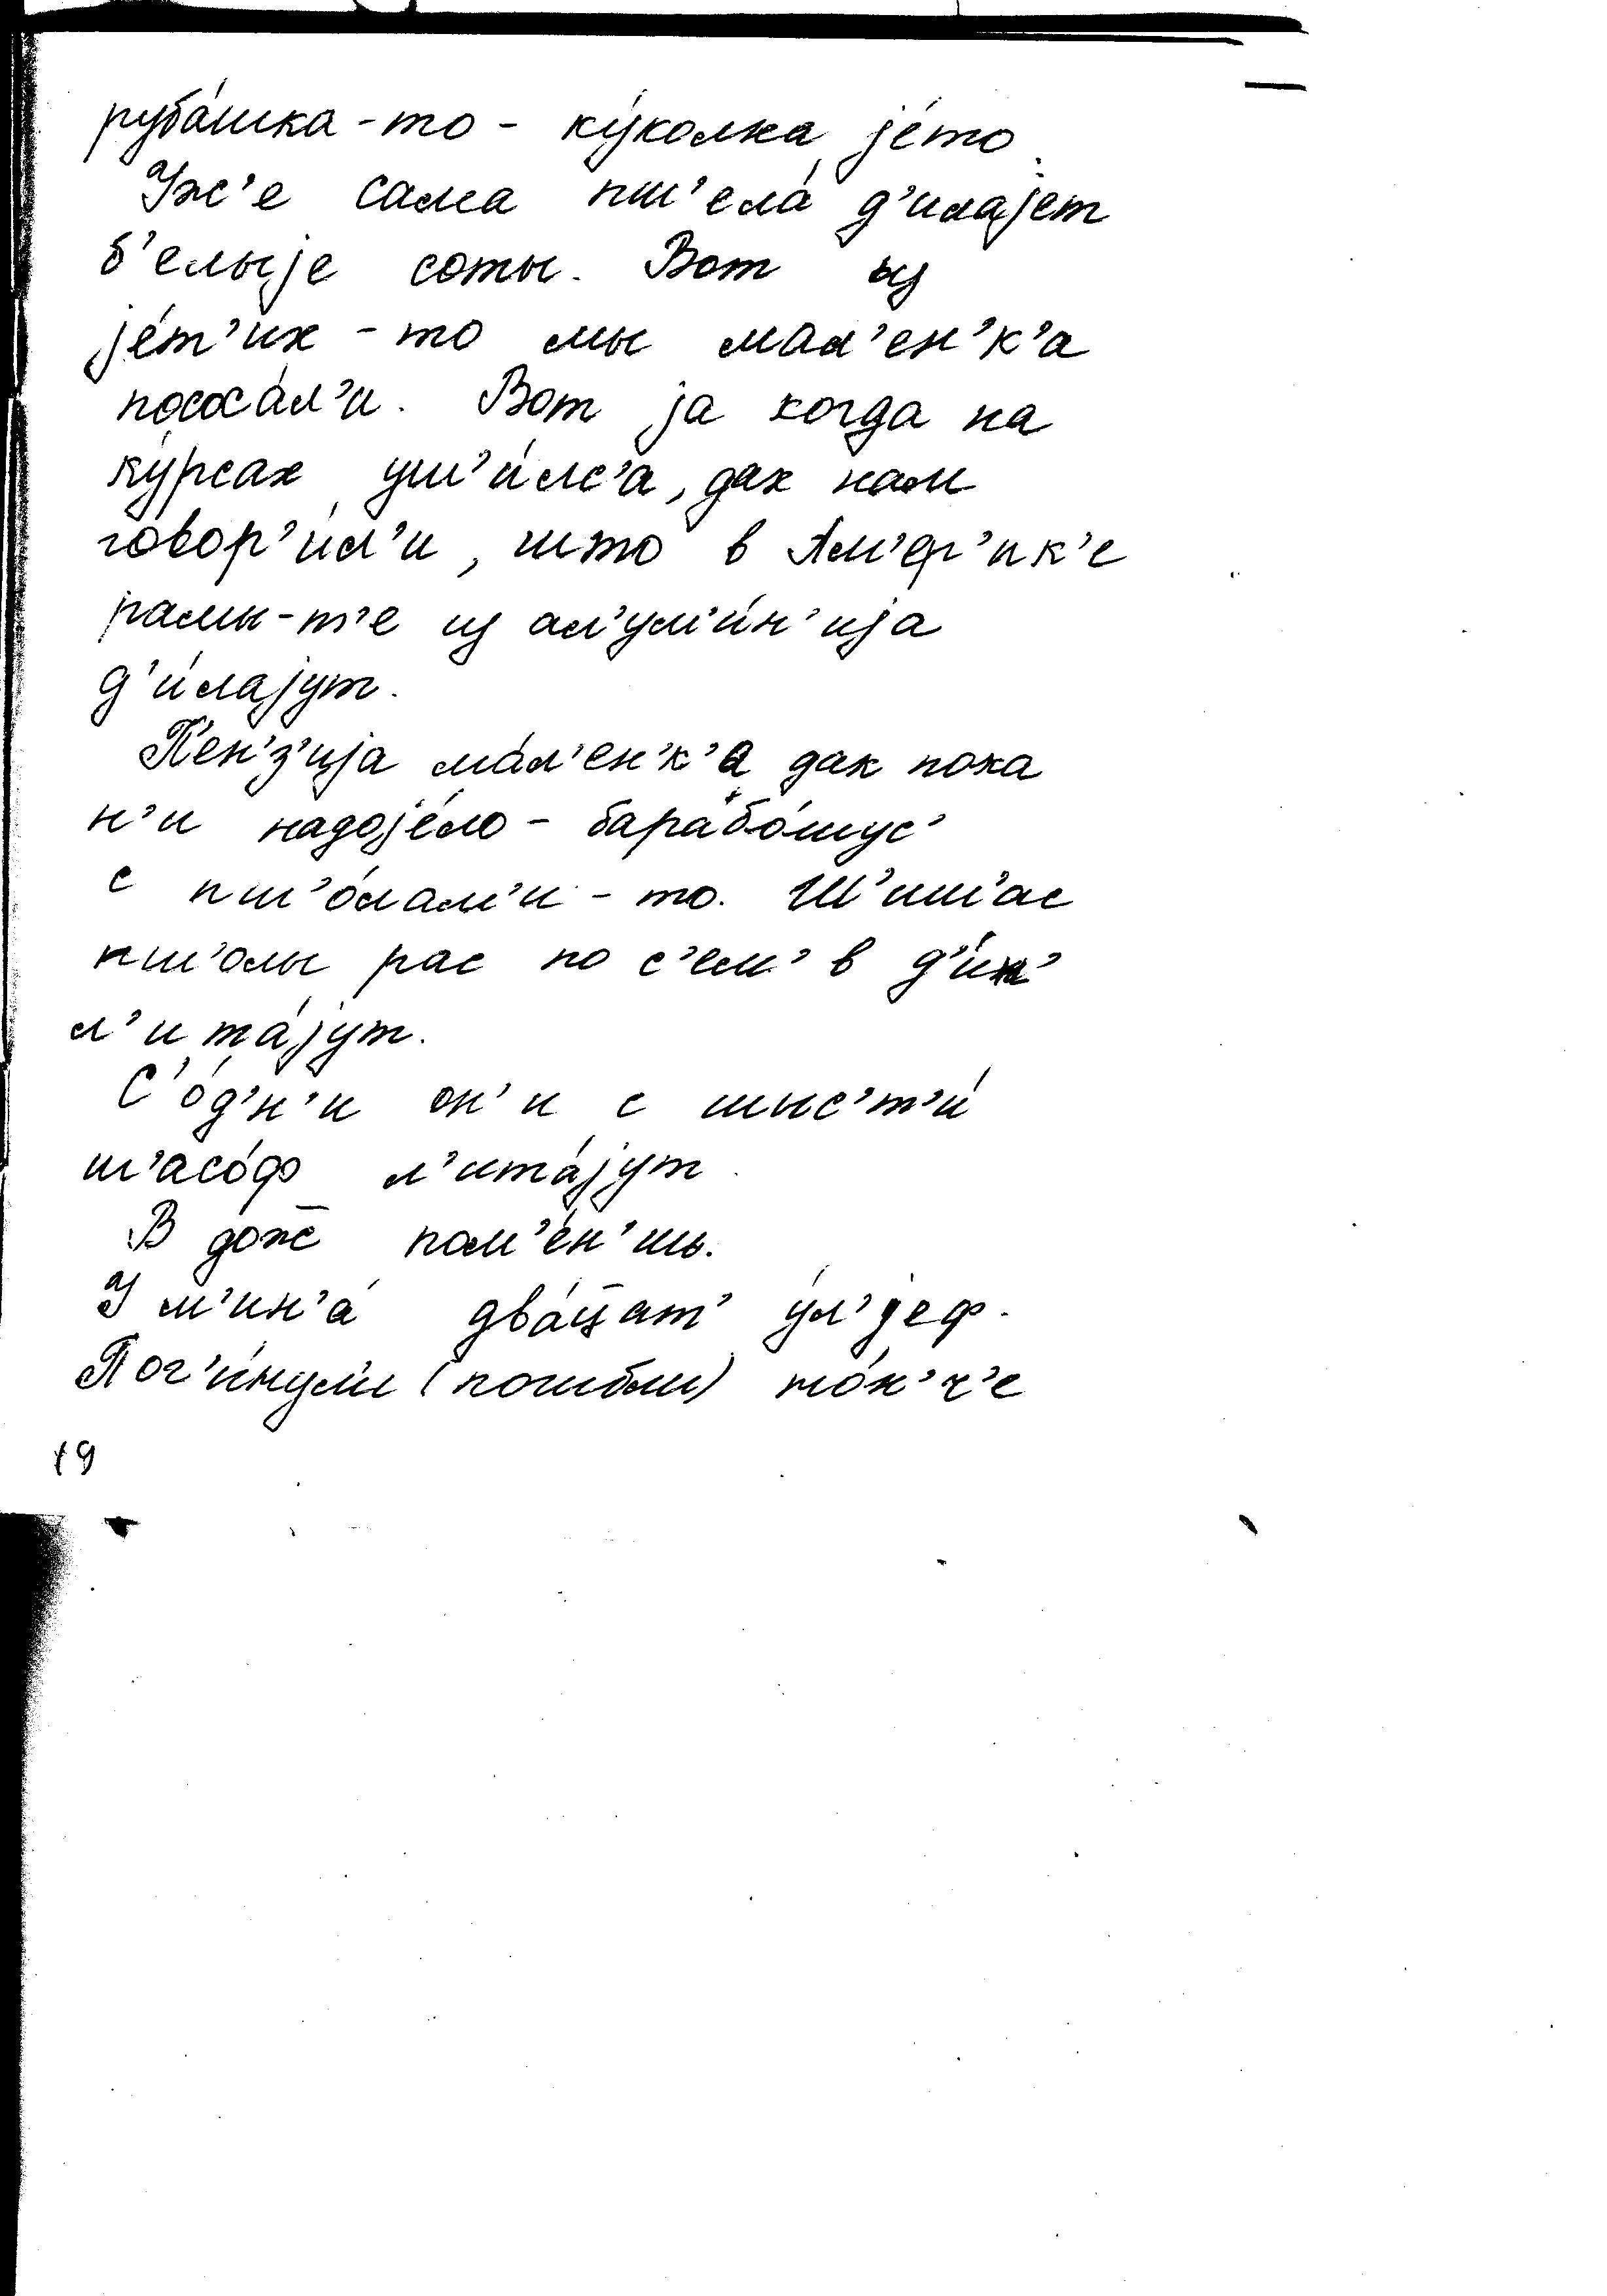 руба́шка-то - ку́колка је́то
Уж’е сама пш’ела́ д’илајет
б’елыје соты. Вот из
је́т’их - то мы мал’ен’к’а
пососа́л’и. Вот ја когда на
ку́рсах уш’и́лс’а, дак нам
говор’и́л’и, што в Ам’ер’ик’е
рамы-т’е из ал’ум’и́н’ија
д’и́лајут.
Пен’з’ија ма́л’ен’к’а дак пока
н’и надоје́ло - барабо́шус’
с пш’о́лам’и - то. Ш’иш’ас
пш’олы рас по с’ем’ в д’ин’
л’ита́јут.
С’о́д’н’и он’и с шыс’т’и́
ш’асо́ф л’ита́јут.
В дож̄ пом’е́н’шь.
У м’ин’а́ два́ц̄ат’ у́л’јеф.
Пог’и́нул’и (погибли) то́к’к’е
19